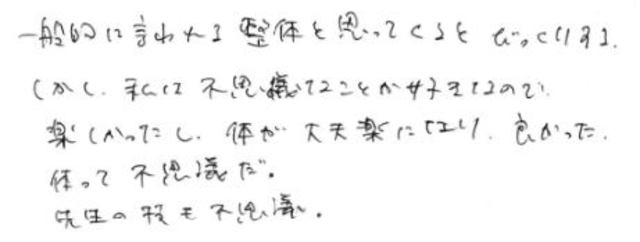 一般的に言われる整体と思ってくるとびっくりする.
しかし、私は不思議なことが好きなので、
楽しかったし、体が大夫楽になり、良かった.
体って不思議だ。
先生の技も不思議。